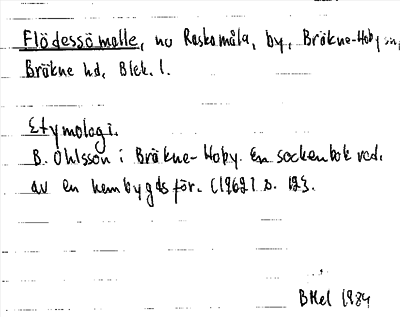 Flödessömolle, nu Roskomåla, by, Bräkne-Hoby sn,
Bräkne hd, Blek. l.
Etymologi.
B. Ohlsson i Bräkne-Hoby. En sockenbok red.
av en hembygdsför. (1962) s. 123.
BHel 1984